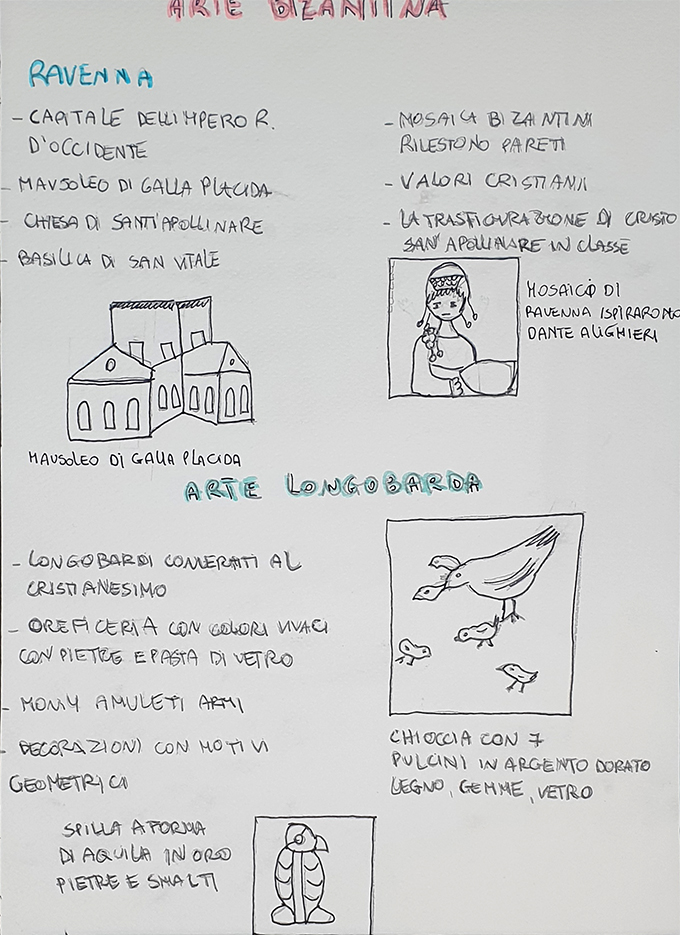 ARTE BIZANTINA
RAVENNA
- CAPITALE DELL'IMPERO R.
D'OCCIDENTE
- MAUSOLEO DI GALLA PLACIDA
- CHIESA DI SANT'APOLLINARE
- BASILICA DI SAN VITALE
MAUSOLEO DI GALLA PLACIDA
- MOSAICA BIZANTINI
RILESTONO PARETI
- VALORI CRISTIANI
- LA TRASFIGURAZIONE DI CRISTO
SAN'APOLLINARE IN CLASSE
MOSAICO DI
RAVENNA ISPIRARONO
DANTE ALIGHIERI
ARTE LONGOBARDA
- LONGOBARDI CONVERTITI AL
CRISTIANESIMO
- OREFICERIA CON COLORI VIVACI
CON PIETRE E PASTA DI VETRO
- AMULETI ARMI
- DECORAZIONI CON MOTIVI
GEOMETRICI
SPILLA A FORMA
DI AQUILA IN ORO
PIETRE E SMALTI
CHIOCCIA CON 7
PULCINI IN ARGENTO DORATO
LEGNO, GEMME, VETRO